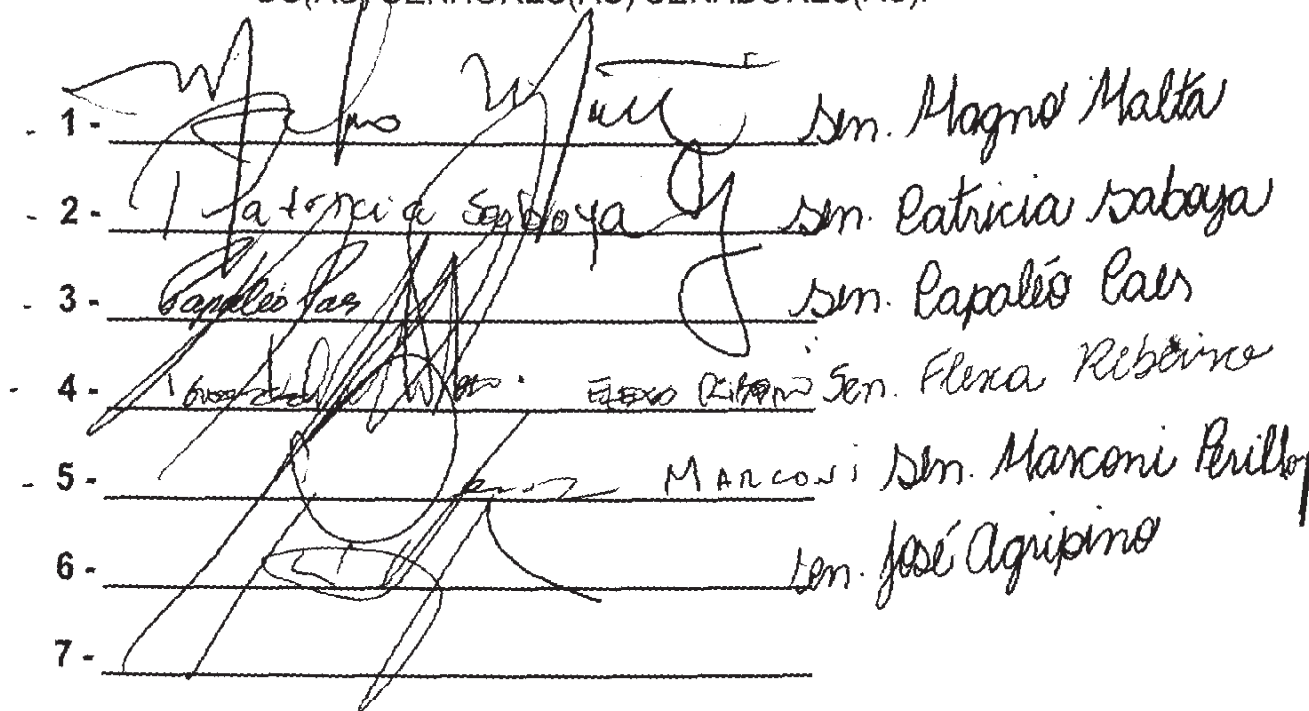 1 - sen. Magno Malta
2 - Patricia Saboya sen. Patricia Saboya
3 - Papaléo Paes sen. Papaléo Paes
4 - Flexa Ribeiro Sen. Flexa Ribeiro
5 - MARCONI sen. Marconi Perillo
6 - sen. José Agripino
7 -